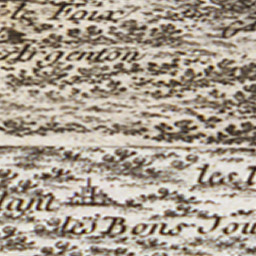 le Foix
Argenton
les
lant
les Bons Jou